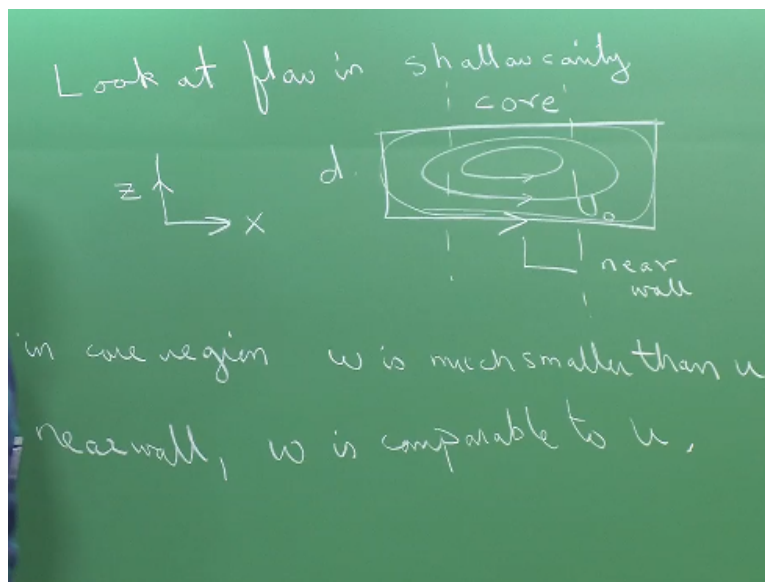 Look at flow in shallow cavity
core
d.
z
x
U₀
L
near
wall
in core region w is much smaller than u
near wall, w is comparable to u.